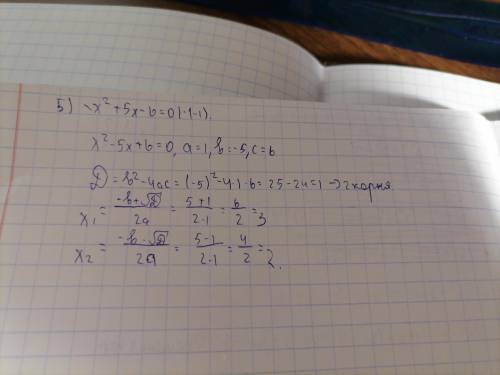 5) -x² + 5x - 6 = 0 |·(-1).
x² - 5x + 6 = 0, a = 1, b = -5, c = 6
D = b² - 4ac = (-5)² - 4·1·6 = 25 - 24 = 1 → 2 корня.
x₁ = (-b + √D)/2a = (5 + 1)/2·1 = 6/2 = 3
x₂ = (-b - √D)/2a = (5 - 1)/2·1 = 4/2 = 2.